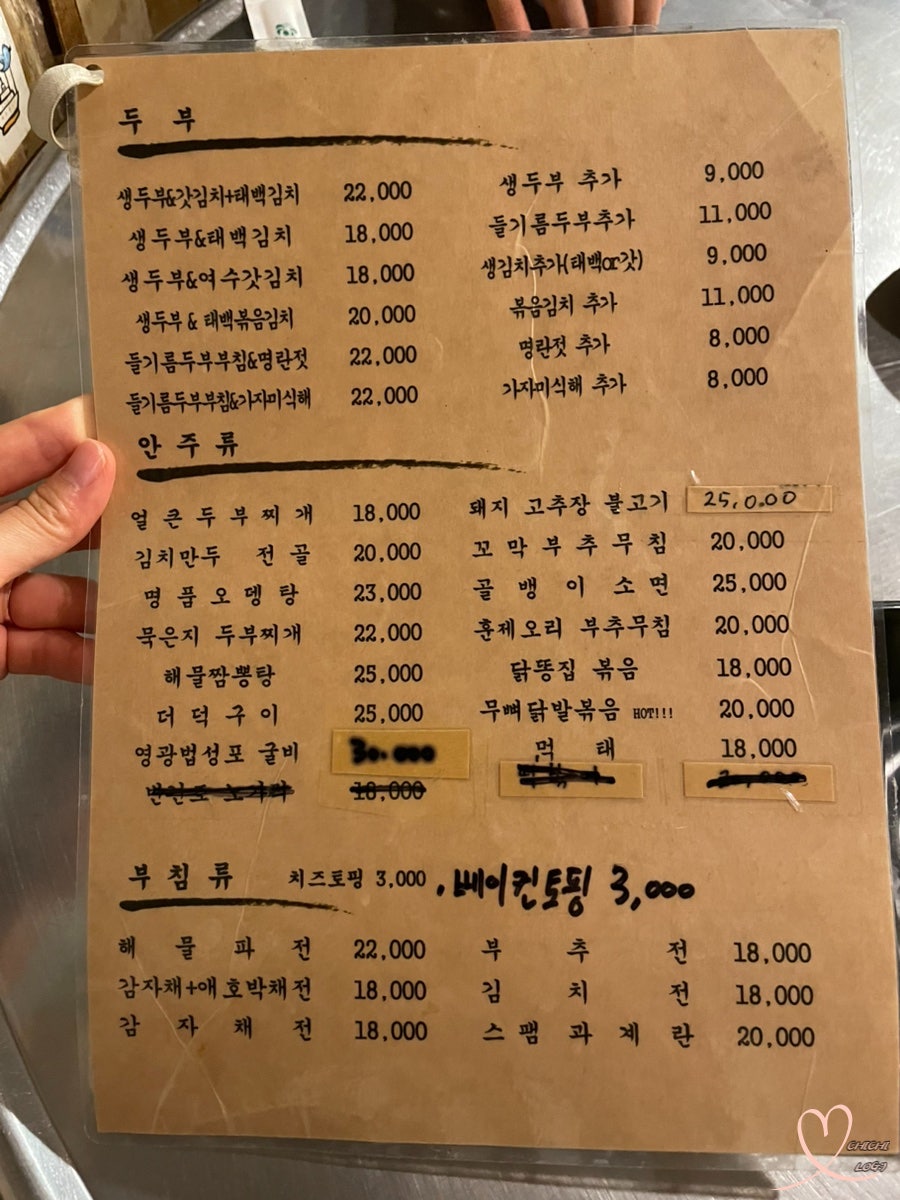 두 부
생두부&갓김치+태백김치 22,000
생두부&태백김치 18,000
생두부&여수갓김치 18,000
생두부 & 태백볶음김치 20,000
들기름두부부침&명란젓 22,000
들기름두부부침&가자미식해 22,000
생두부 추가 9,000
들기름두부추가 11,000
생김치추가(태백or갓) 9,000
볶음김치 추가 11,000
명란젓 추가 8,000
가자미식해 추가 8,000
안 주 류
얼큰두부찌개 18,000
김치만두 전골 20,000
명품오뎅탕 23,000
묵은지 두부찌개 22,000
해물짬뽕탕 25,000
더덕구이 25,000
영광법성포 굴비 30.000
18,000
돼지 고추장 불고기 25,0.00
꼬막부추무침 20,000
골뱅이소면 25,000
훈제오리 부추무침 20,000
닭똥집 볶음 18,000
무뼈닭발볶음 HOT!!! 20,000
먹 태 18,000
부 침 류 치즈토핑 3,000 , 베이컨토핑 3,000
해물파전 22,000
감자채+애호박채전 18,000
감자채전 18,000
부추전 18,000
김치전 18,000
스팸과계란 20,000
CHICHI
LOGI